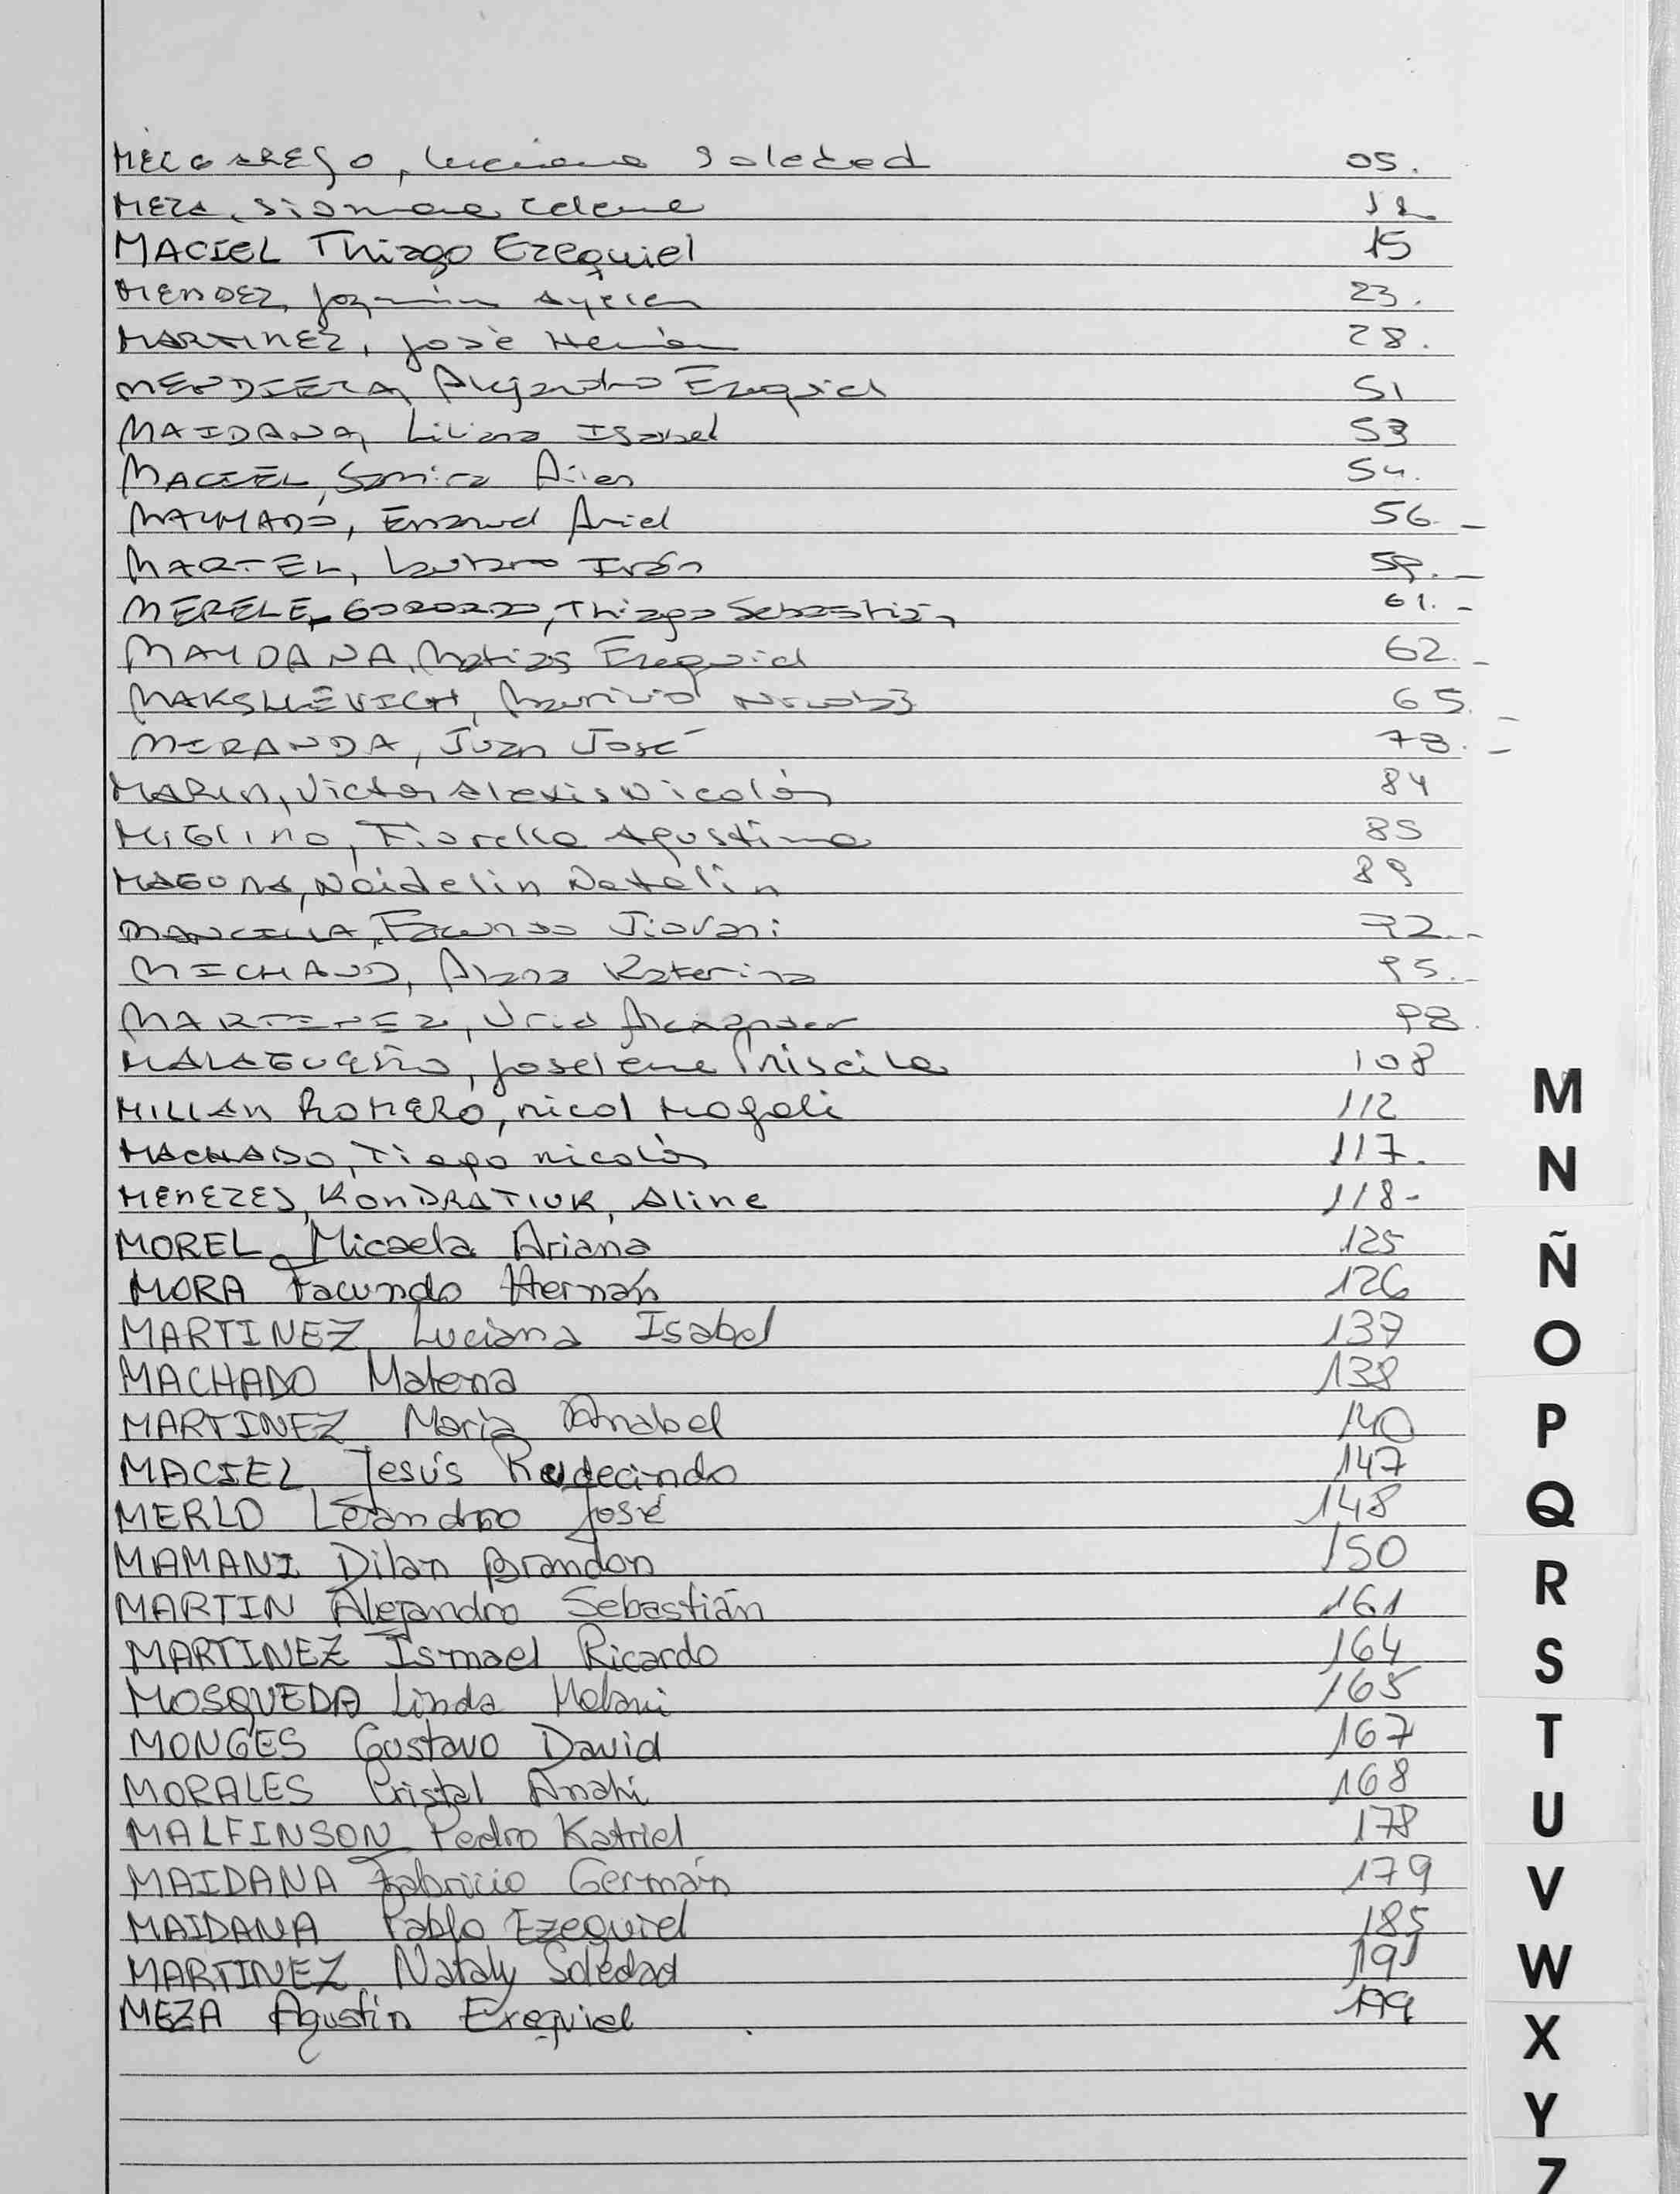 MELGAREJO, Luciana Soledad 05.
MEZA, Siomara Celene 12
MACIEL Thiago Ezequiel 15
MENDEZ, Jazmín Ayelen 23.
MARTINEZ, José Hernán 28.
MENDIETA, Alejandro Ezequiel 51
MAIDANA, Liliana Isabel 53
MACIEL, Samira Ailen 54.
MACHADO, Emanuel Ariel 56.-
MARTEL, Lautaro Iván 59.-
MERELE, GODOZZO, Thiago Sebastián 61.-
MAYDANA, Matias Ezequiel 62.-
Mauricio Nicolás 65.-
MIRANDA, Juan José 73.-
MARIN, Victor Alexis Nicolás 84
MIGLINO, Fiorella Agustina 85
Naidelin Natalin 89
MANCILLA, Facundo Jiovani 92.-
MICHAUD, Alana Katerina 95.-
MARTINEZ, Uriel Alexander 98.
MALAGUEÑO, Joselene Priscila 108
MILLAN ROMERO, Nicol Magali 112
MACHADO, Tiago Nicolás 117.
MENEZES, KONDRATIUK, Aline 118-
MOREL Micaela Ariana 125
MORA Facundo Hernán 126
MARTINEZ Luciana Isabel 137
MACHADO Malena 138
MARTINEZ María Anabel 140
MACIEL Jesús Rudecindo 147
MERLO Leandro José 148
MAMANI Dilan Brandon 150
MARTIN Alejandro Sebastián 161
MARTINEZ Ismael Ricardo 164
MOSQUEDA Linda Melani 165
MONGES Gustavo David 167
MORALES Cristal Anahi 168
MALFINSON Pedro Katriel 178
MAIDANA Fabricio Germán 179
MAIDANA Pablo Ezequiel 185
MARTINEZ Nataly Soledad 191
MEZA Agustín Ezequiel 199
M
N
Ñ
O
P
Q
R
S
T
U
V
W
X
Y
Z